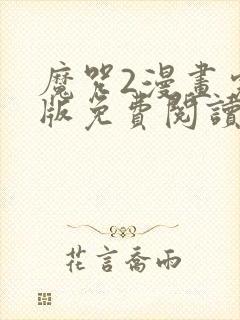 魔咒2漫畫
版免費閱讀
花言喬雨